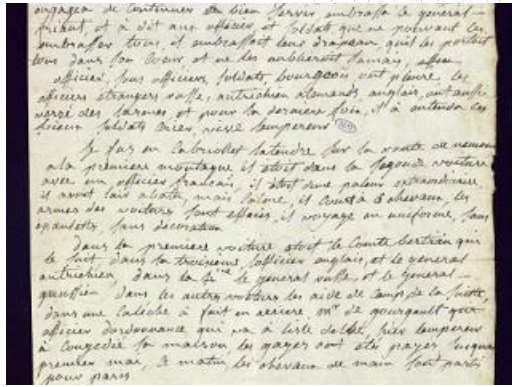 engagea de continuer de bien servir embrassa le general
friant, et a dit aux officiers et soldats qui ne pouvant les
embrasser tous, il embrassoit leur drapeau quil les portoit
tous dans son coeur et ne les oublieroit jamais,
officier, sous officiers, soldats bourgeois ont pleuré, les
officiers etrangers russe, autrichien alemands anglais, ont aussi
versé des larmes et pour la derniere fois, il a entendu ces
vieux soldats crier, vive lempereur
je fus en cabriolet latendre sur la route de nemours
a la premiere montagne il étoit dans la segonde voiture
avec un officier francais, il étoit dune paleur extraordinaire,
il avoit lair abatu, mais calme, il courra 6 chevaux, les
armes des voitures sont effacés, il voyage en uniforme, sans
epaulette, sans decoration
dans la premiere voiture etoit le Comte bertran qui
le suit, dans la troisieme, lofficier anglais, et le general
autrichien dans la 4me le general russe, et le general
prussien dans les autres voitures les aide de camps de la suitte,
dans une caleche a fait en arriere, mr de gourgault
officier dordonnance qui va a lisle delbe, hier lempereur
a congedié sa maison, les gages ont été payés jusquau
premier mai, ce matin les chevaux de main sont parti
pour paris